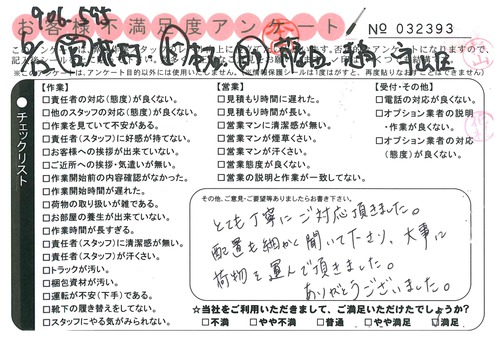 906-595
お客様不満足度アンケート
№ 032393
【作業】
□責任者の対応(態度)が良くない。
□他のスタッフの対応(態度)が良くない。
□作業を見ていて不安がある。
□責任者(スタッフ)に好感が持てない。
□お客様への挨拶が出来ていない。
□ご近所への挨拶・気遣いが無い。
□作業開始前の内容確認がなかった。
□作業開始時間が遅れた。
□荷物の取り扱いが雑である。
□お部屋の養生が出来ていない。
□作業時間が長すぎる。
□責任者(スタッフ)に清潔感が無い。
□責任者(スタッフ)が汗くさい。
□トラックが汚い。
□梱包資材が汚い。
□運転が不安(下手)である。
□靴下の履き替えをしてない。
□スタッフにやる気がみられない。
【営業】
□見積もり時間に遅れた。
□見積もり時間が長い。
□営業マンに清潔感が無い。
□営業マンが煙草くさい。
□営業マンが汗くさい。
□営業態度が良くない。
□営業の説明と作業が一致してない。
【受付・その他】
□電話の対応が良くない。
□オプション業者の説明
・作業が良くない。
□オプション業者の対応
(態度)が良くない。
チェックリスト
その他、ご意見・ご要望等ありましたらお書き下さい。
とても丁寧にご対応頂きました。
配置も細かく聞いて下さり、大事に
荷物を運んで頂きました。
ありがとうございました。
☆当社をご利用いただきまして、ご満足いただけたでしょうか?
□不満 □やや不満 □普通 □やや満足 □満足